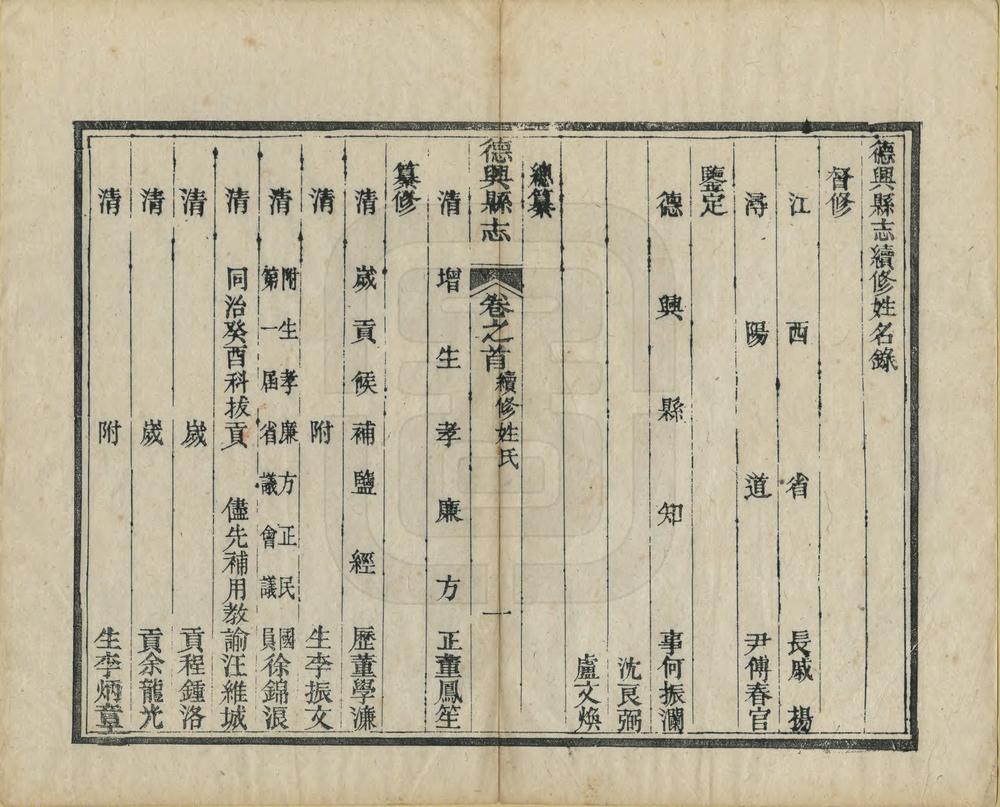 德興縣志續修姓名錄
督修
江西省長戚揚
潯陽道尹傅春官
鑒定
德興縣知事何振瀾
沈良弼
盧文煥
總纂
德興縣志 卷之首 續修姓氏 一
清增生孝廉方正董鳳笙
纂修
清歲貢候補鹽經歷董學濂
清附生李振文
清附生孝廉方正民國第一屆省議會議員徐錦浪
清同治癸酉科拔貢 儘先補用教諭汪維城
清歲貢程鍾洛
清歲貢余龍光
清附生李炳章